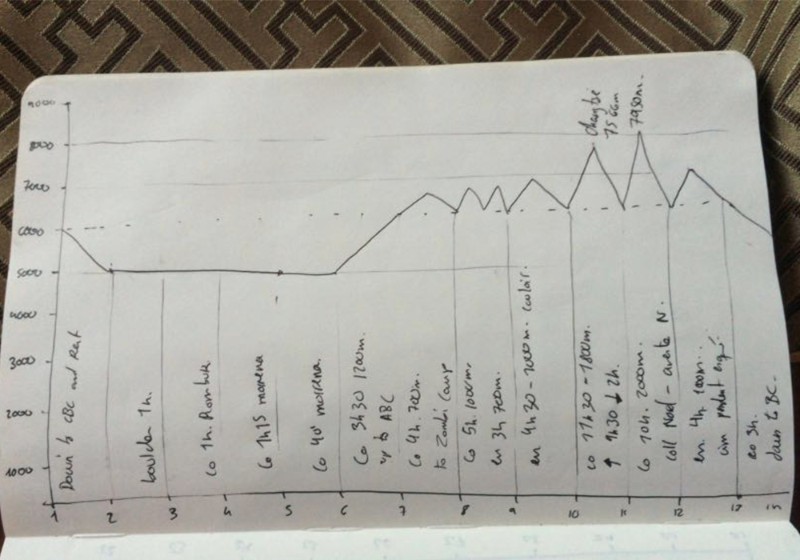 9000
8000
7000
6000
5000
4000
3000
2000
1000
Changtse
7566m
7950m.
Down to CBC and Rest
boulder 1h.
Co 1h. Rombuk
Co 1h15 morrena
Co 40' morrena.
Co 3h30 1200m.
up to ABC
Co 4h. 700m.
to Zombi Camp
Co 5h 1000m.
en 3h 700m.
en 4h30 - 1000m.
co 11h30 - 1800m.
↑ 9h30 ↓ 2h.
Co 10h. 2000m.
Coll Nord - N.
en 4h 1000m.
cim
3h.
down to BC.
1 2 3 4 5 6 7 8 9 10 11 12 13